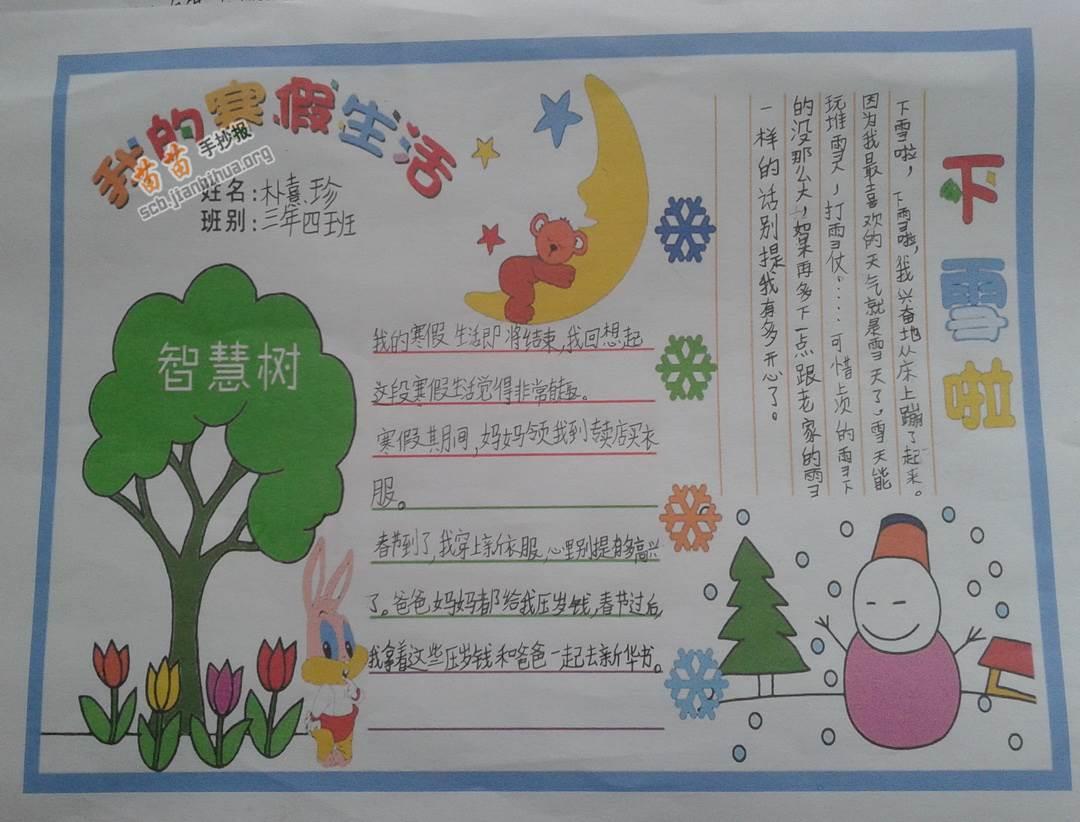 我的寒假生活
苗苗手抄报
scb.jianbihua.org
姓名:朴熹珍
班别:三年四班
智慧树
我的寒假生活即将结束,我回想起
这段寒假生活觉得非常有趣。
寒假其期间,妈妈领我到专卖店买衣
服。
春节到了,我穿上新衣服,心里别提有多高兴
了。爸爸妈妈都给我压岁钱,春节过后
我拿着这些压岁钱和爸爸一起去新华书。
下雪啦
下雪啦,下雪啦,我兴奋地从床上蹦了起来。
因为我最喜欢的天气就是雪天了,雪天能
玩堆雪人,打雪仗……可惜这次的雪下
的没那么大,如果再多下一点跟老家的雪
一样的话别提我有多开心了。